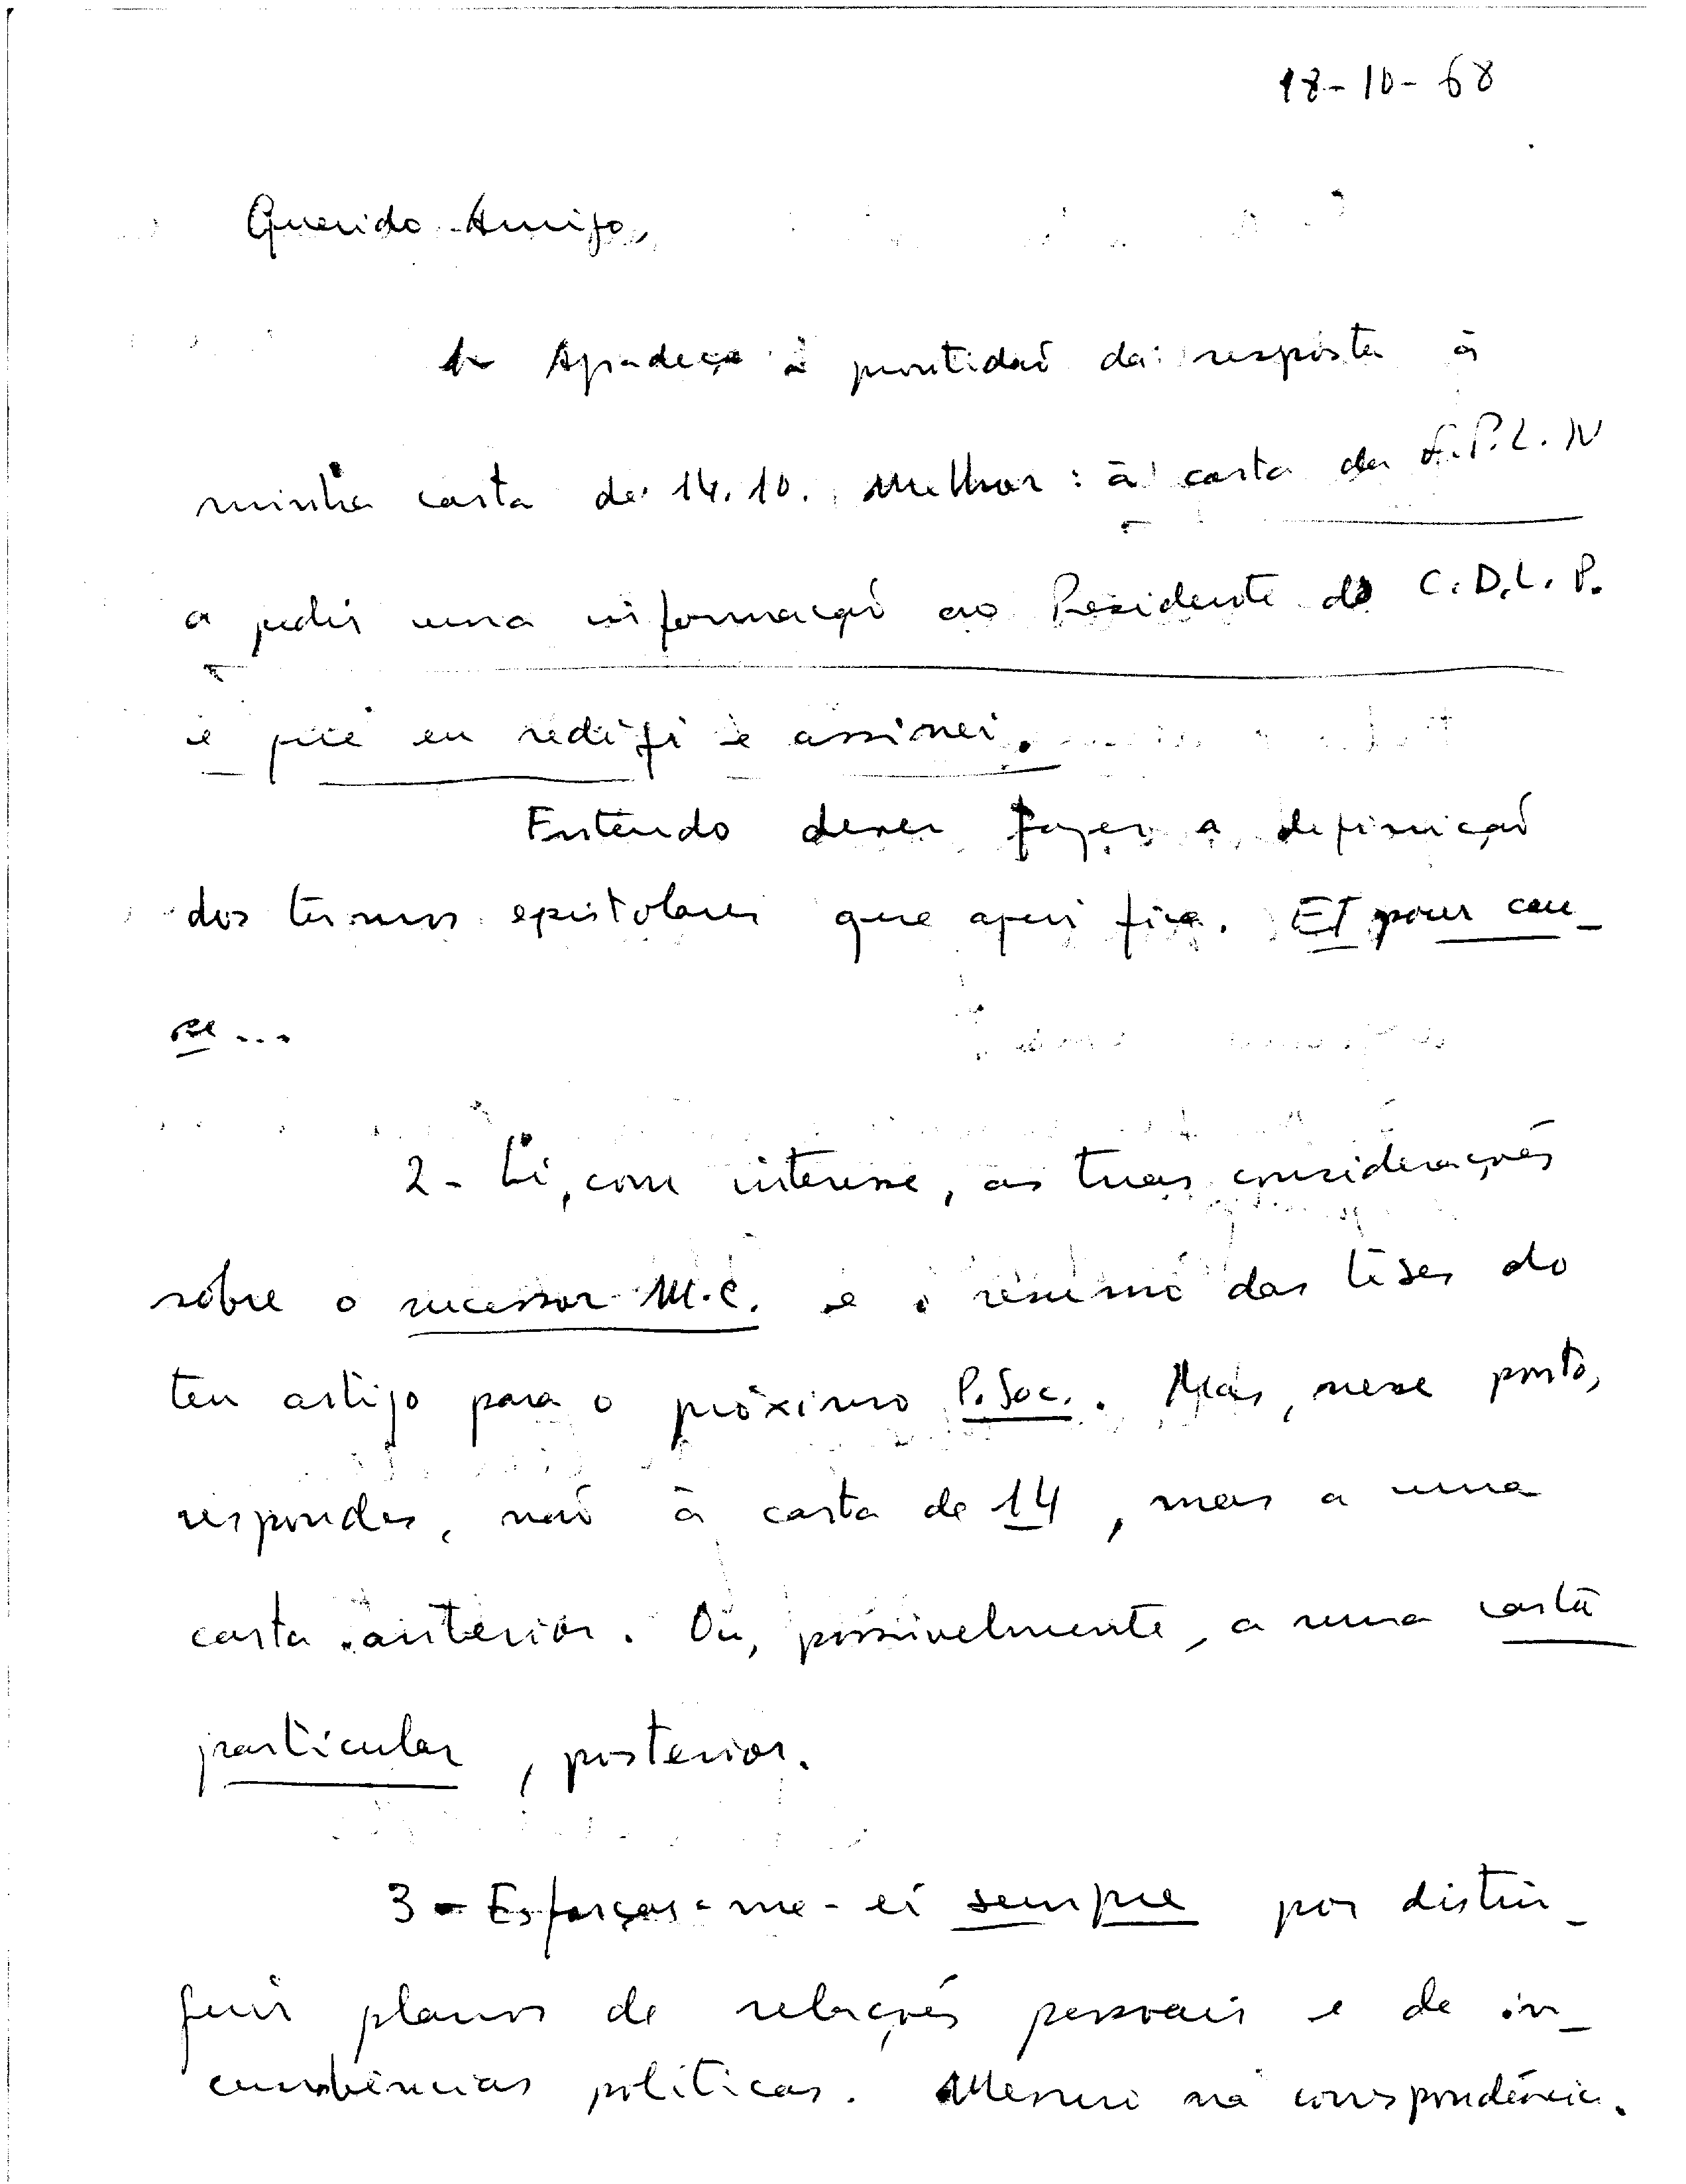 18-10-68
Querido Amigo,
1- Agradeço a prontidaõ da resposta à
minha carta de 14.10. Melhor: à carta da F.P.L.N
a pedir uma informaçaõ ao Presidente do C.D.L.P.
e que eu redigi e assinei.
Entendo dever fazer a definiçaõ
dos termos epistolares que aqui fica. Et pour cau-
se...
2- Li, com interesse, as tuas consideraçoẽs
sôbre o sucessor M.C. e o resumo das teses do
teu artigo para o próximo P.Soc.. Mas, nesse ponto,
respondes, naõ à carta de 14, mas a uma
carta anterior. Ou, possivelmente, a uma carta
particular, posterior.
3- Esforçar-me-ei sempre por distin-
guir planos de relaçoẽs pessoais e de in-
cumbências políticas. Mesmo na correspondência.